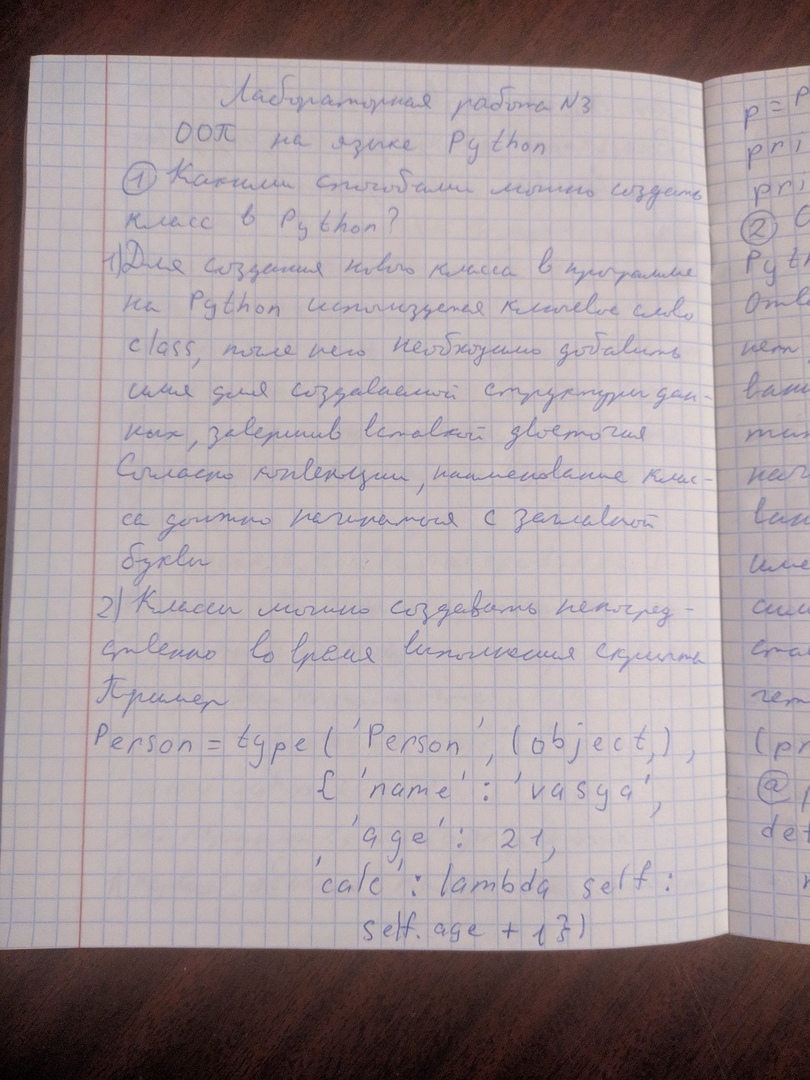 Лабораторная работа №3
ООП на языке Python
① Какими способами можно создать
класс в Python?
1) Для создания нового класса в программе
на Python используется ключевое слово
class, после него необходимо добавить
имя для создаваемой структуры дан-
ных, завершив вставкой двоеточия
Согласно конвенции, наименование клас-
са должно начинаться с заглавной
буквы
2) Классы можно создавать непосред-
ственно во время выполнения скрипта
Пример
Person = type ( 'Person', (object,),
{ 'name' : 'vasya',
'age' : 21,
'calc' : lambda self :
self.age + 1})
p = P
pri
pri
② С
Pyth
Отве
нет
вани
тич
нач
ван
име
сим
ста
чет
(pr
@ p
def